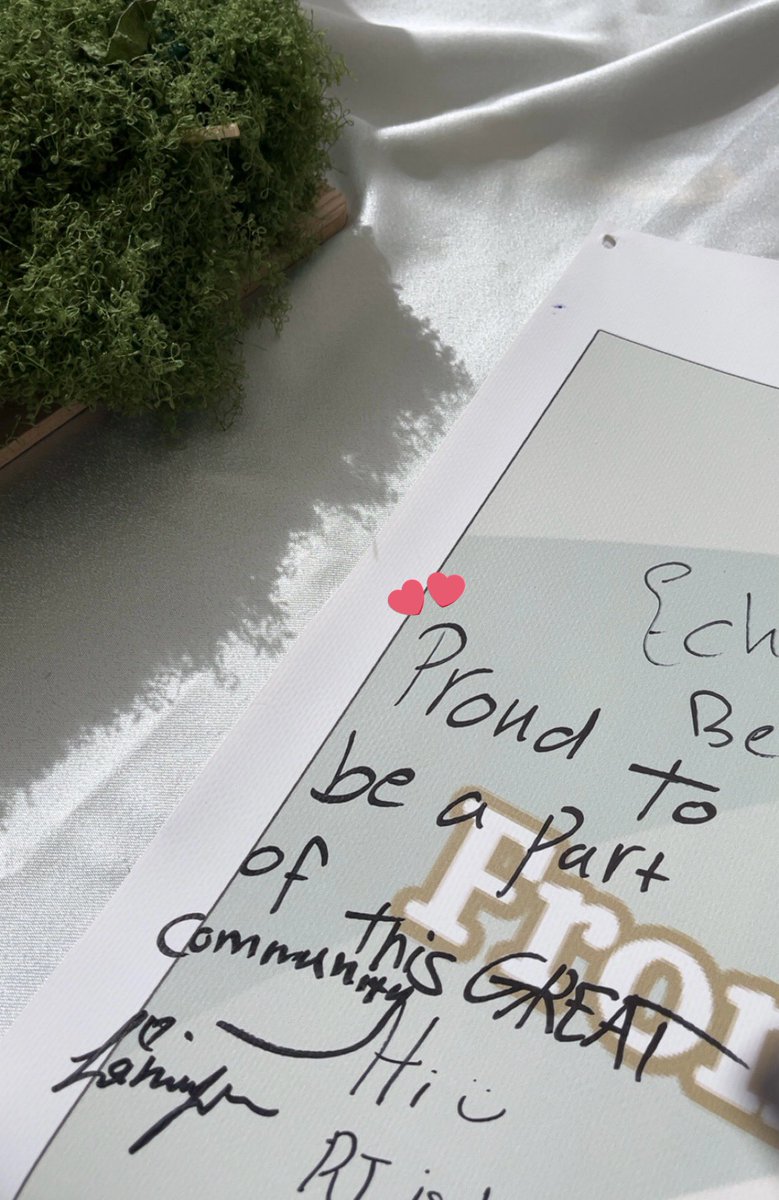 Ech
Be
Proud To
be a Part
of this GREAT
community
From
Hi
RT is